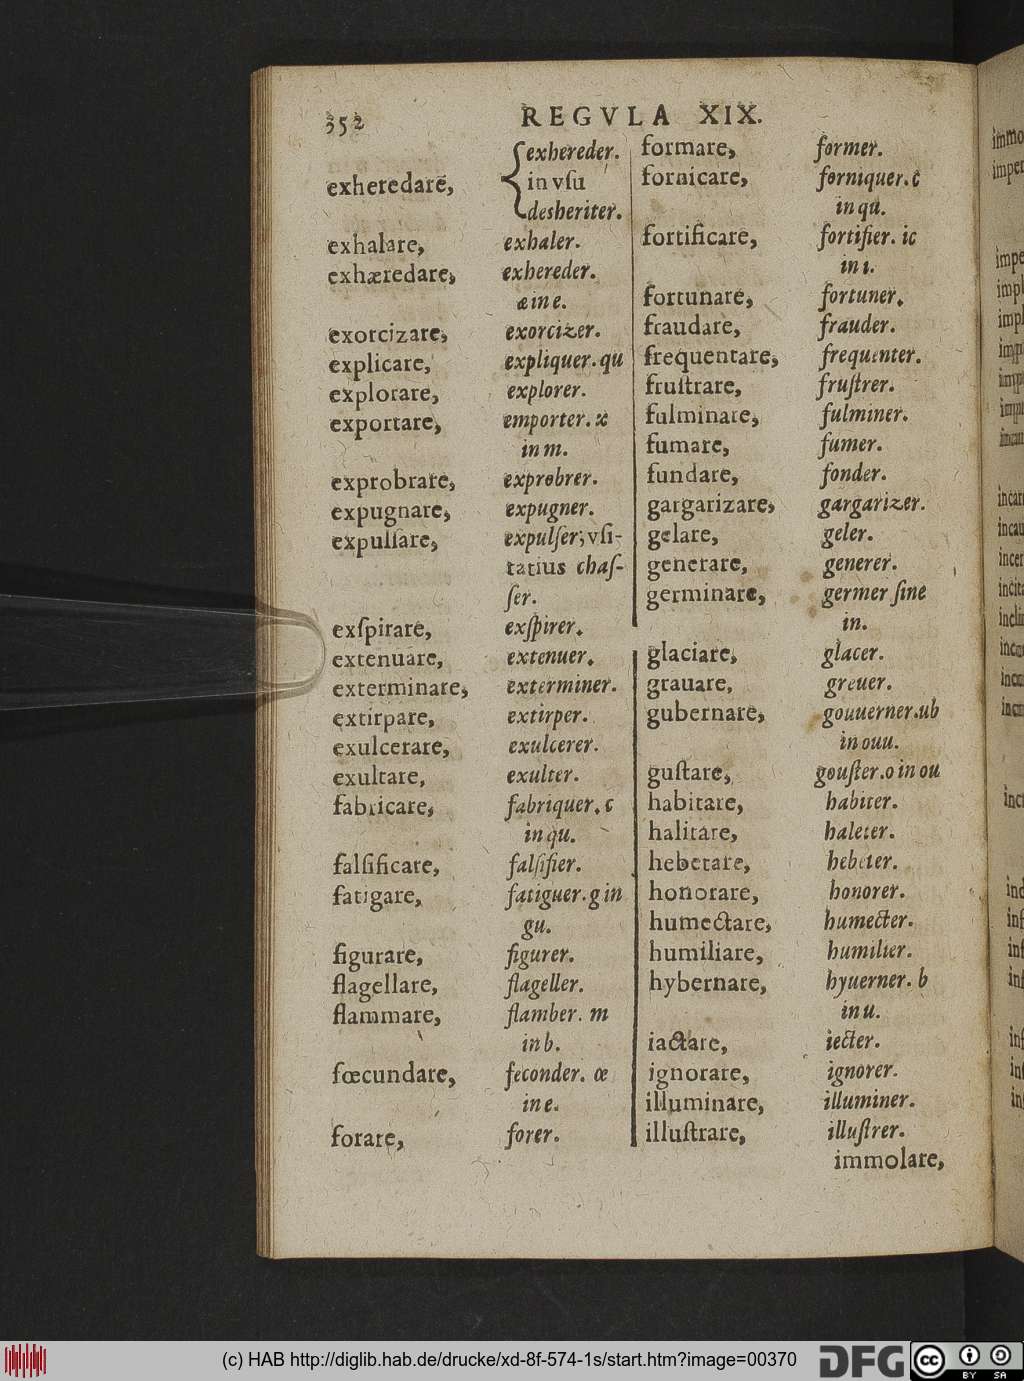 352 REGVLA XIX.
exheredare, exhereder.
in vſu
desheriter.
exhalare, exhaler.
exhæredare, exhereder.
æ in e.
exorcizare, exorcizer.
explicare, expliquer. qu
explorare, explorer.
exportare, emporter. x
in m.
exprobrare, exprobrer.
expugnare, expugner.
expulſare, expulſer, vſi-
tatius chaſ-
ſer.
exſpirare, exſpirer.
extenuare, extenuer.
exterminare, exterminer.
extirpare, extirper.
exulcerare, exulcerer.
exultare, exulter.
fabricare, fabriquer. c
in qu.
falſificare, falſifier.
fatigare, fatiguer. g in
gu.
figurare, figurer.
flagellare, flageller.
flammare, flamber. m
in b.
fœcundare, feconder. œ
in e.
forare, forer.
formare, former.
fornicare, forniquer. c
in qu.
fortificare, fortifier. ic
in i.
fortunare, fortuner.
fraudare, frauder.
frequentare, frequenter.
fruſtrare, fruſtrer.
fulminare, fulminer.
fumare, fumer.
fundare, fonder.
gargarizare, gargarizer.
gelare, geler.
generare, generer.
germinare, germer ſine
in.
glaciare, glacer.
grauare, greuer.
gubernare, gouuerner. ub
in ouu.
guſtare, gouſter. o in ou
habitare, habiter.
halitare, haleter.
hebetare, hebeter.
honorare, honorer.
humectare, humecter.
humiliare, humilier.
hybernare, hyuerner. b
in u.
iactare, iecter.
ignorare, ignorer.
illuminare, illuminer.
illuſtrare, illuſtrer.
immolare,
(c) HAB http://diglib.hab.de/drucke/xd-8f-574-1s/start.htm?image=00370
DFG
cc BY SA